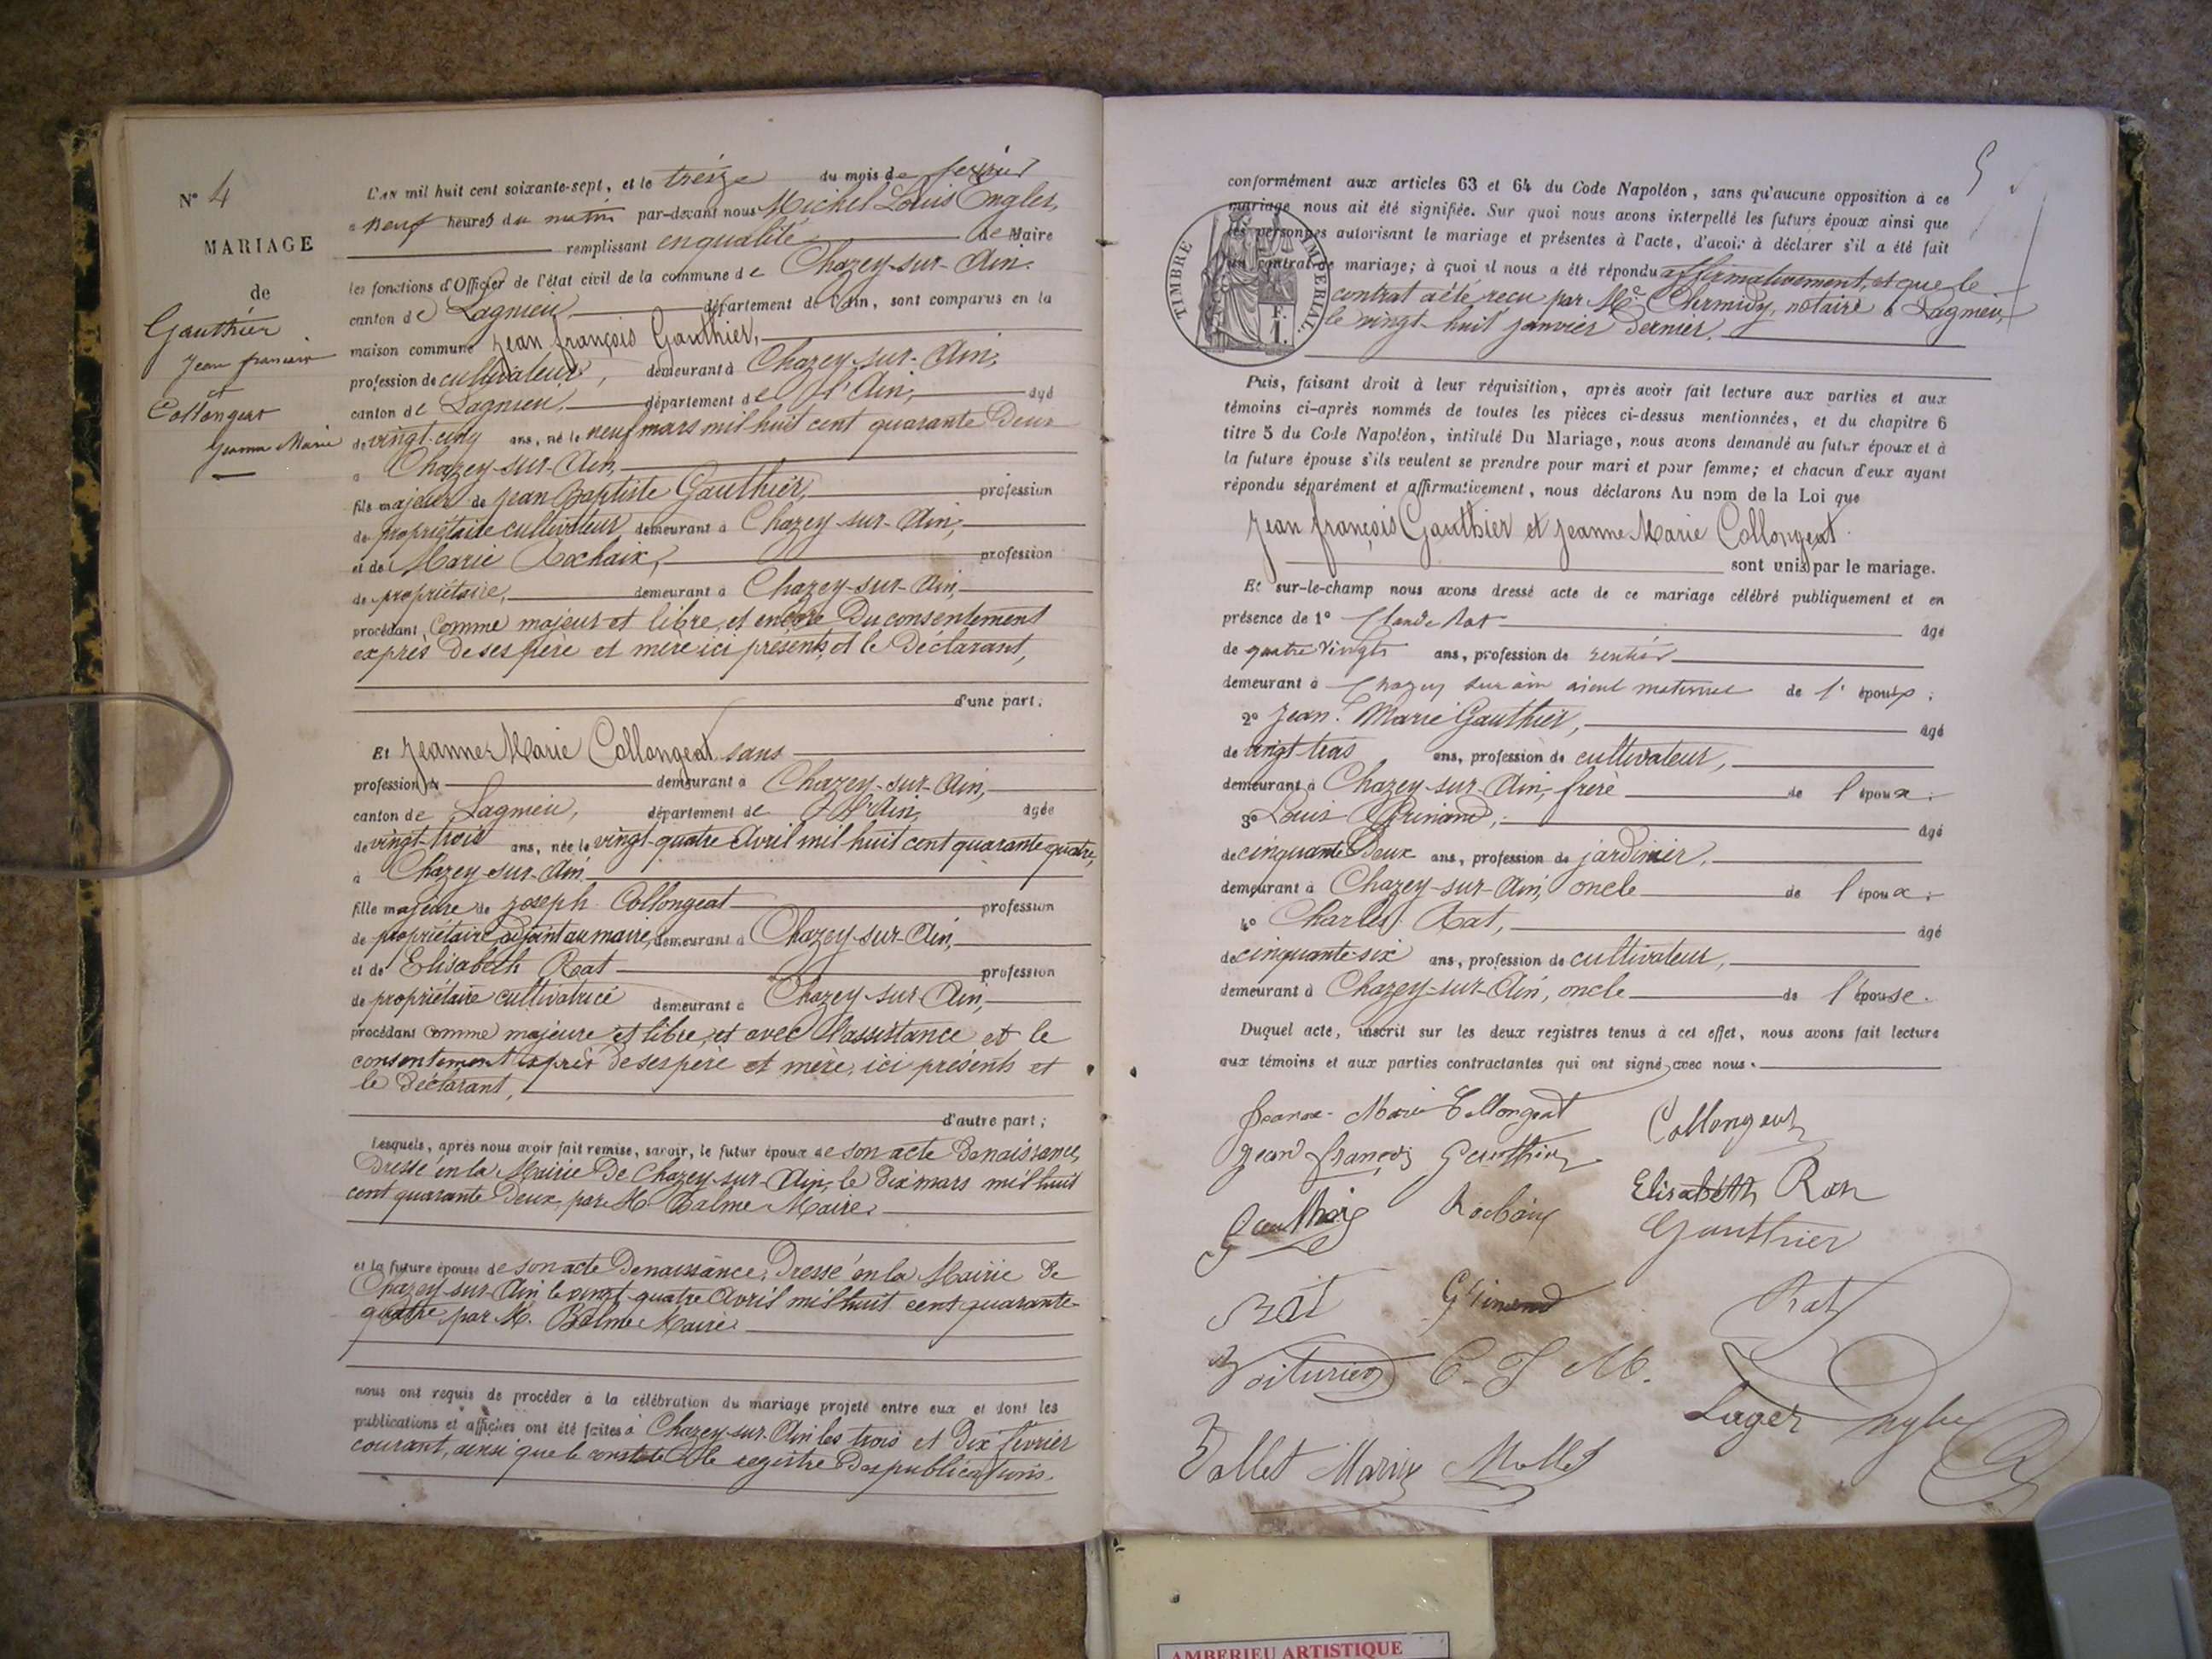 N° 4
MARIAGE
de
Gauthier
Jean francois
et
Collongeat
Jeanne Marie
L'AN mil huit cent soixante-sept, et le treize du mois de fevrier
a neuf heures du matin par-devant nous Michel Louis Engler,
remplissant en qualité de Maire
les fonctions d'Officier de l'état civil de la commune de Chazey-sur-Ain.
canton de Lagnieu, département de l'Ain, sont comparus en la
maison commune Jean françois Gauthier,
profession de cultivateur, demeurant à Chazey-sur-Ain,
canton de Lagnieu, département de l'Ain, âgé
de vingt-cinq ans, né le neuf mars mil huit cent quarante Deux
a Chazey-sur-Ain,
fils majeur de Jean Baptiste Gauthier, profession
de propriétaire cultivateur demeurant à Chazey-sur-Ain,
et de Marie Rochaix, profession
de propriétaire, demeurant à Chazey-sur-Ain,
procédant Comme majeur et libre, et encore Du consentement
exprès De ses père et mère ici présents, et le Déclarant,
d'une part;
Et Jeanne Marie Collongeat sans
profession de demeurant à Chazey-sur-Ain,
canton de Lagnieu, département de l'Ain, âgée
de vingt-trois ans, née le vingt-quatre Avril mil huit cent quarante quatre,
à Chazey-sur-Ain
fille majeure de Joseph Collongeat profession
de propriétaire adjoint au maire, demeurant à Chazey-sur-Ain,
et de Elisabeth Rat profession
de propriétaire cultivatrice demeurant à Chazey-sur-Ain,
procédant Comme majeure et libre, et avec l'assistance et le
consentement exprès de ses père et mère, ici présents et
le Déclarant,
d'autre part;
Lesquels, après nous avoir fait remise, savoir, le futur époux de son acte De naissance,
Dressé en la Mairie De Chazey-sur-Ain, le Dix mars mil huit
cent quarante Deux, par M. Balme Maire.
et la future épouse de son acte De naissance, Dressé en la Mairie De
Chazey-sur-Ain le vingt-quatre Avril mil huit cent quarante
quatre par M. Balme Maire.
nous ont requis de procéder à la célébration du mariage projeté entre eux et dont les
publications et affiches ont été faites à Chazey-sur-Ain les trois et Dix février
courant, ainsi que le constate le registre Des publications.
5
conformément aux articles 63 et 64 du Code Napoléon, sans qu'aucune opposition à ce
mariage nous ait été signifiée. Sur quoi nous avons interpellé les futurs époux ainsi que
les personnes autorisant le mariage et présentes à l'acte, d'avoir à déclarer s'il a été fait
un contrat de mariage; à quoi il nous a été répondu affirmativement, et que le
contrat a été reçu par Me. Chermidy, notaire à Lagnieu,
le vingt-huit janvier Dernier.
TIMBRE IMPÉRIAL.
1 F.
Puis, faisant droit à leur réquisition, après avoir fait lecture aux parties et aux
témoins ci-après nommés de toutes les pièces ci-dessus mentionnées, et du chapitre 6
titre 5 du Code Napoléon, intitulé Du Mariage, nous avons demandé au futur époux et à
la future épouse s'ils veulent se prendre pour mari et pour femme; et chacun d'eux ayant
répondu séparément et affirmativement, nous déclarons Au nom de la Loi que
Jean françois Gauthier et Jeanne Marie Collongeat
sont unis par le mariage.
Et sur-le-champ nous avons dressé acte de ce mariage célébré publiquement et en
présence de 1° Claude Rat âgé
de quatre vingts ans, profession de rentier
demeurant à Chazey sur ain aieul maternel de l'épouse;
2° Jean Marie Gauthier, âgé
de vingt-trois ans, profession de cultivateur,
demeurant à Chazey-sur-Ain, frère de l'époux;
3° Louis Grinand, âgé
de cinquante Deux ans, profession de jardinier,
demeurant à Chazey-sur-Ain, oncle de l'époux;
4° Charles Rat, âgé
de cinquante-six ans, profession de cultivateur,
demeurant à Chazey-sur-Ain, oncle de l'épouse.
Duquel acte, inscrit sur les deux registres tenus à cet effet, nous avons fait lecture
aux témoins et aux parties contractantes qui ont signé avec nous.
Jeanne-Marie Collongeat Collongeat
Jean françois Gauthier
Gauthier Rochaix Elisabeth Rat
Gauthier
Rat Grinand Rat
Voiturier C. J M.
Lager Engler
Vallet Marius Mollet
AMBERIEU ARTISTIQUE